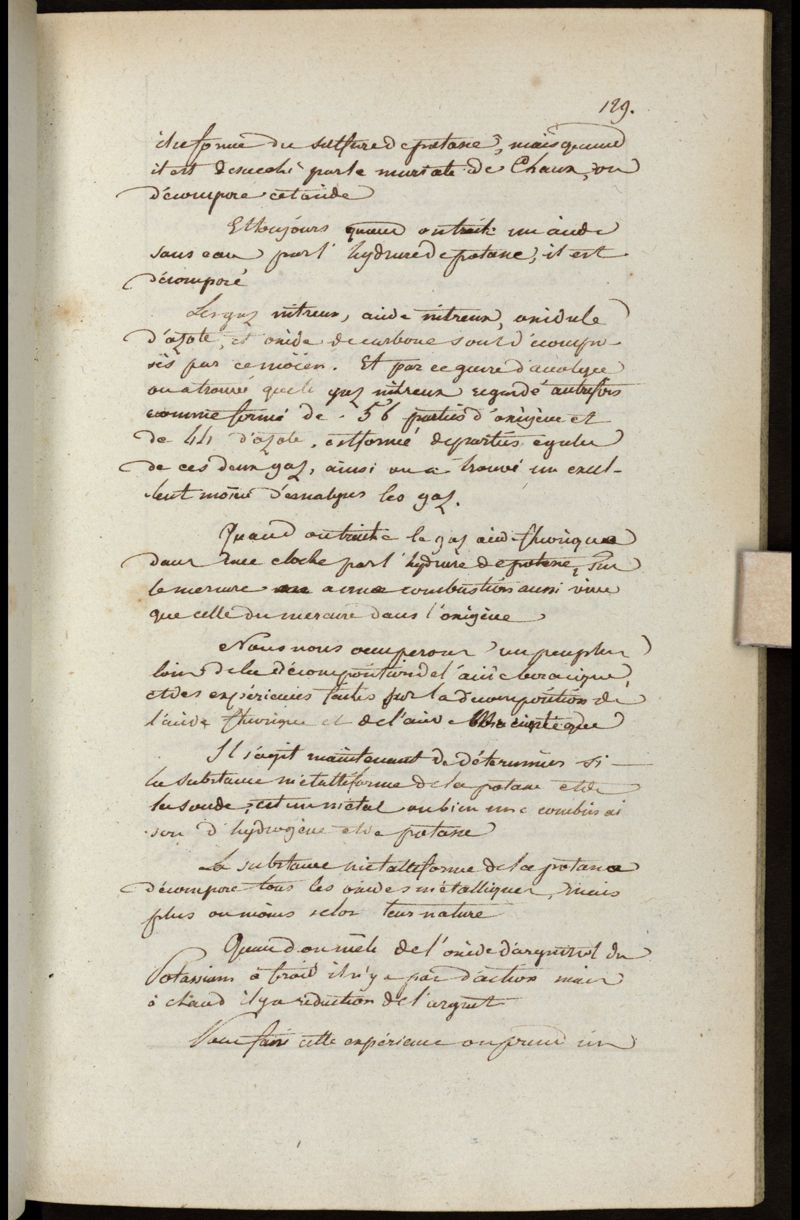 129.
il se forme du sulfure de potasse, mais quand
il est desseché par le muriate de Chaux, on
décompose cet acide
Et toujours quand on traite un acide
sans eau par l'hydrure de potasse, il est
décomposé
Les gaz nitreux, acide nitreux, oxidule
d'azote, et oxide de carbone sont décompo-
sés par ce moïen. Et par ce genre d'analyse
on a trouvé que le gaz nitreux regardé autrefois
comme formé de 56 parties d'oxigène et
de 44 d'azote, est formé de parties egales
de ces deux gaz, ainsi on a trouvé un excel-
lent moïen d'analyser les gaz.
Quand on traite le gaz acide fluorique
dans une cloche par l'hydrure de potasse, sur
le mercure il y a une combustion aussi vive
que celle du mercure dans l'oxigène
Nous nous occuperons un peu plus
loin de la décomposition de l'acide boracique,
et des expériences faites sur la décomposition de
l'acide fluorique et de l'acide muriatique
Il s'agit maintenant de déterminer si
la substance métalliforme de la potasse et de
la soude, est un métal ou bien une combinai
son d'hydrogène et de potasse
La substance métalliforme de la potasse
décompose tous les oxides métalliques, mais
plus ou moins selon leur nature
Quand on mêle de l'oxide d'argent et du
Potassium à froid il n'y a pas d'action mais
à chaud il y a réduction de l'argent
Pour faire cette expérience on prend un